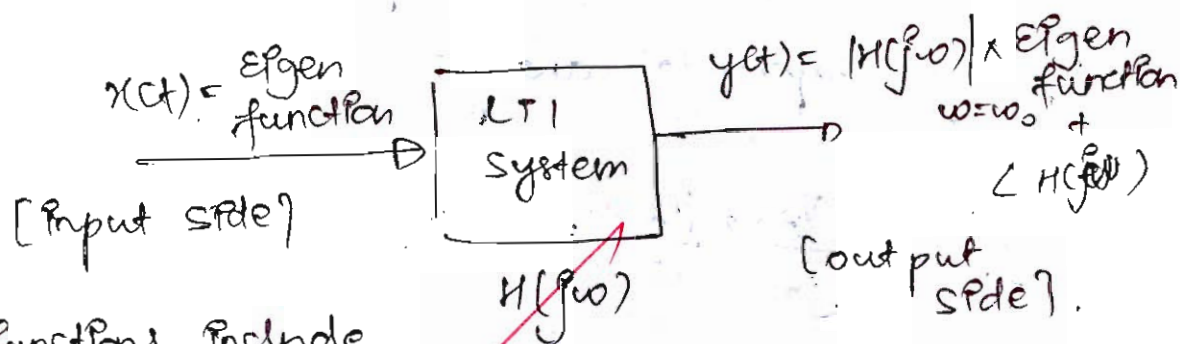 x(t) = Eigen function
LTI system
y(t) = |H(jω)| × Eigen function
ω=ω₀ +
∠ H(jω)
[input side]
H(jω)
[output side].
functions include